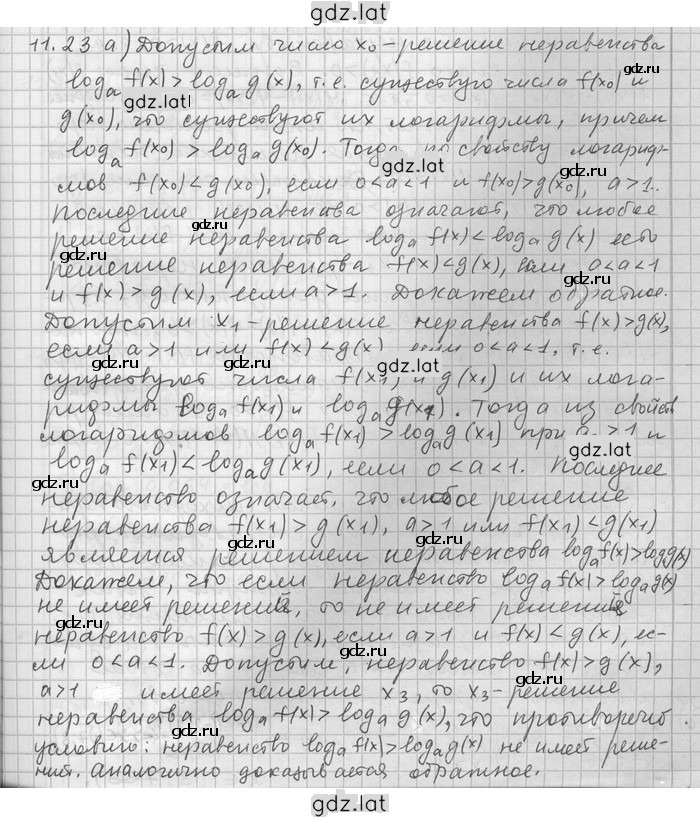 gdz.lat
11.23 а) Допустим число x₀-решение неравенства
logₐ f(x) > logₐ g(x), т.е. существуют числа f(x₀) и
gdz.lat
g(x₀), что существуют их логарифмы, причем
logₐ f(x₀) > logₐ g(x₀). Тогда по свойству логариф-
gdz.lat
мов f(x₀) < g(x₀), если 0 < a < 1 и f(x₀) > g(x₀), a > 1.
Последние неравенства означают, что любое
gdz.lat
решение неравенства logₐ f(x) < logₐ g(x) есть
решение неравенства f(x) < g(x), если 0 < a < 1
gdz.lat
и f(x) > g(x), если a > 1. Докажем обратное.
gdz.lat
Допустим x₁-решение неравенства f(x) > g(x),
если a > 1 или f(x) < g(x), если 0 < a < 1, т.е.
gdz.lat gdz.lat
существуют числа f(x₁) и g(x₁) и их лога-
рифмы logₐ f(x₁) и logₐ g(x₁). Тогда из свойств
gdz.lat
логарифмов logₐ f(x₁) > logₐ g(x₁) при a > 1 и
gdz.lat
logₐ f(x₁) < logₐ g(x₁), если 0 < a < 1. Последнее
gdz.lat
неравенство означает, что любое решение
неравенства f(x₁) > g(x₁), a > 1 или f(x₁) < g(x₁)
gdz.lat
является решением неравенства logₐ f(x) > logₐ g(x)
gdz.lat
Докажем, что если неравенство logₐ f(x) > logₐ g(x)
не имеет решений, то не имеет решений
gdz.lat
неравенство f(x) > g(x), если a > 1 и f(x) < g(x), ес-
gdz.lat
ли 0 < a < 1. Допустим, неравенство f(x) > g(x),
a > 1 имеет решение x₃, то x₃-решение
gdz.lat
неравенства logₐ f(x) > logₐ g(x), что противоречит
gdz.lat
условию: неравенство logₐ f(x) > logₐ g(x) не имеет реше-
ний. Аналогично доказывается обратное.
gdz.lat
gdz.lat